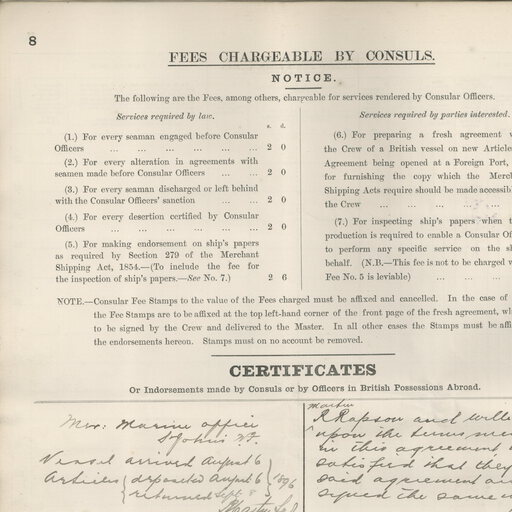 8
FEES CHARGEABLE BY CONSULS.
NOTICE.
The following are the Fees, among others, chargeable for services rendered by Consular Officers.
Services required by law.
s. d.
(1.) For every seaman engaged before Consular
Officers ... ... ... ... ... ... 2 0
(2.) For every alteration in agreements with
seamen made before Consular Officers ... ... 2 0
(3.) For every seaman discharged or left behind
with the Consular Officers' sanction ... ... 2 0
(4.) For every desertion certified by Consular
Officers ... ... ... ... ... ... 2 0
(5.) For making endorsement on ship's papers
as required by Section 279 of the Merchant
Shipping Act, 1854.—(To include the fee for
the inspection of ship's papers.—See No. 7.) 2 6
Services required by parties interested.
(6.) For preparing a fresh agreement
the Crew of a British vessel on new
Agreement being opened at a Foreign Port,
for furnishing the copy which the
Shipping Acts require should be made
the Crew ... ... ... ...
(7.) For inspecting ship's papers when
production is required to enable a Consular
to perform any specific service on the
behalf. (N.B.—This fee is not to be charged
Fee No. 5 is leviable) ... ... ...
NOTE.—Consular Fee Stamps to the value of the Fees charged must be affixed and cancelled. In the case of
the Fee Stamps are to be affixed at the top left-hand corner of the front page of the fresh agreement,
to be signed by the Crew and delivered to the Master. In all other cases the Stamps must be
the endorsements hereon. Stamps must on no account be removed.
CERTIFICATES
Or Indorsements made by Consuls or by Officers in British Possessions Abroad.
Marine office
St Johns N.F.
Vessel arrived August 6
Articles deposited August 6 1896
returned Sept 8
master
R Rapson and
upon the terms
in this agreement
satisfied that they
said agreement
signed the same